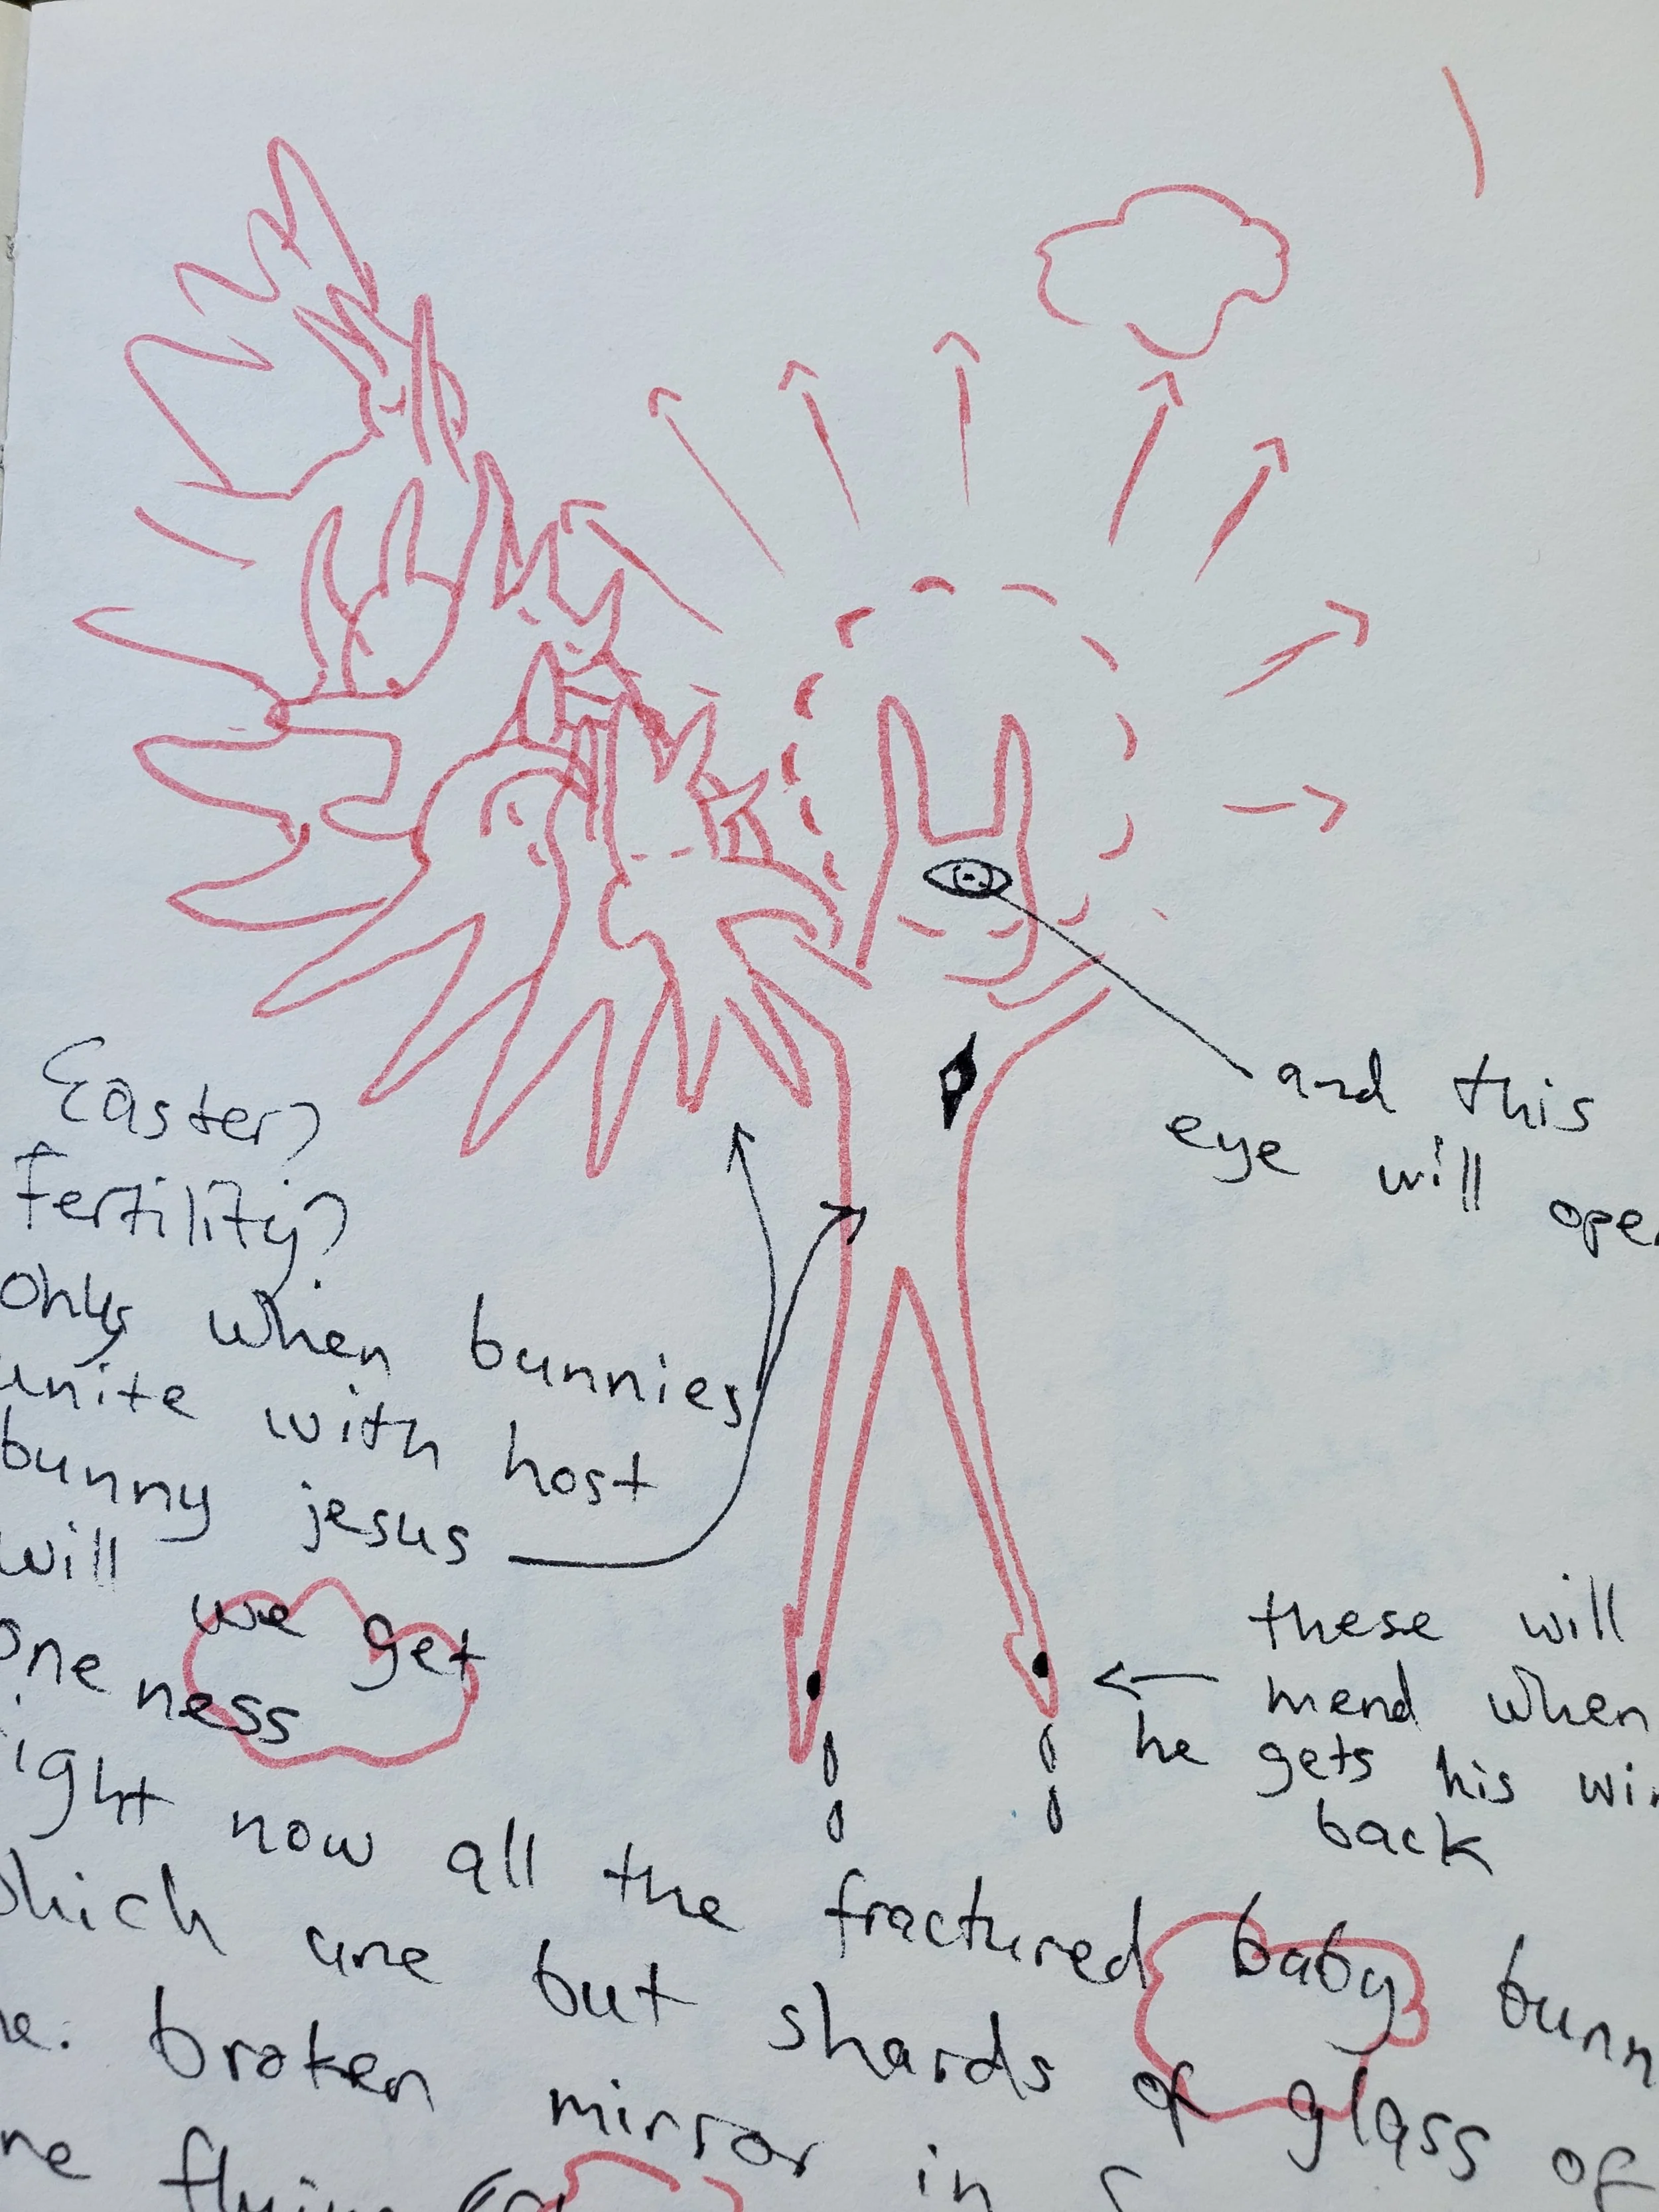 and this
eye will
Easter?
Fertility?
only when bunnies
unite with host
bunny jesus
will we get
oneness
these will
mend when
he gets his
back
right now all the fractured baby
which are but shards of glass of
broken mirror in